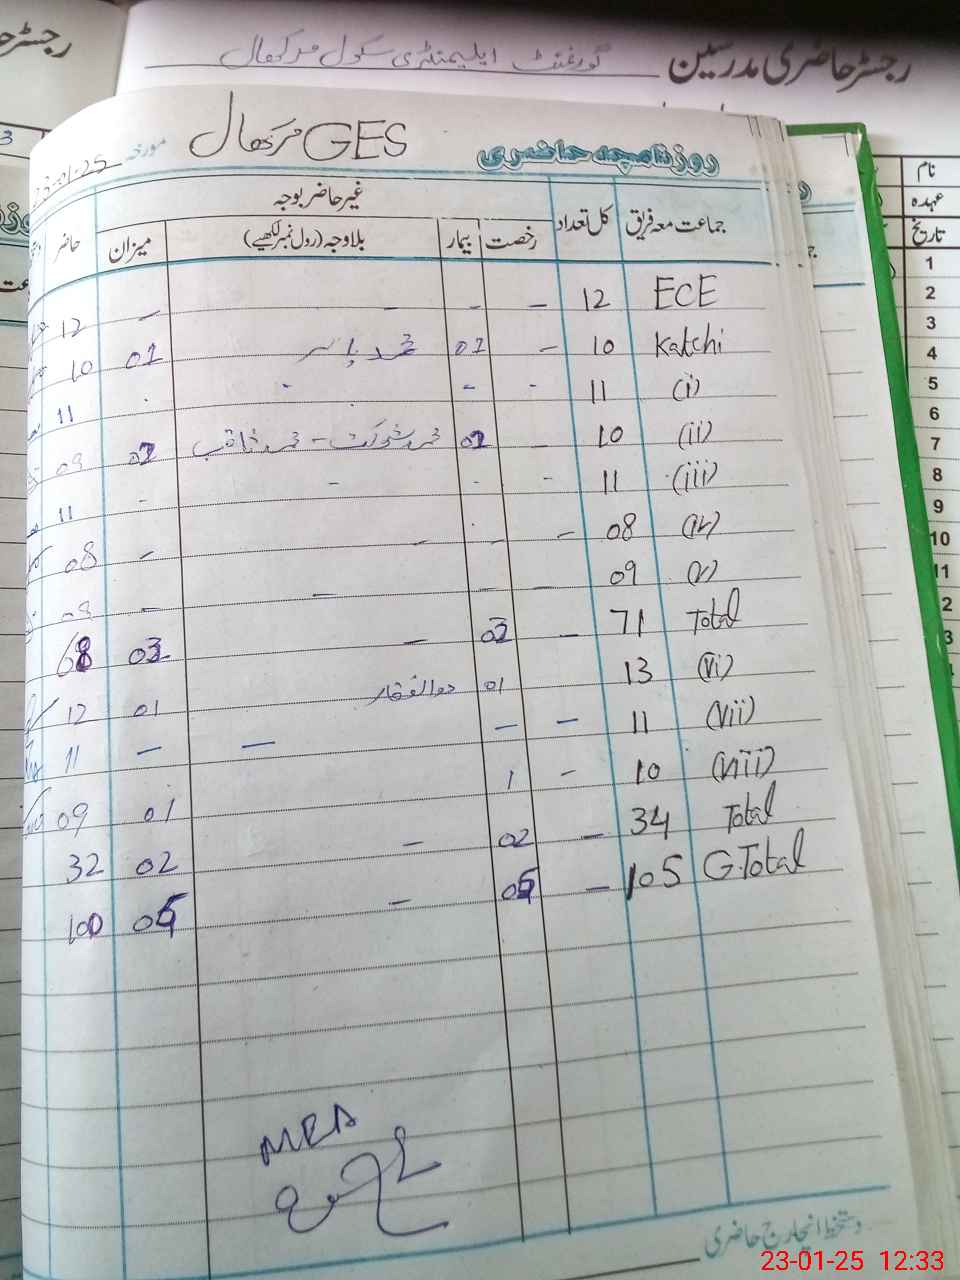 رجسٹر حاضری مدرسین گورنمنٹ ایلیمنٹری سکول مرکھال
روزنامچہ حاضری GES مرکھال مورخہ 23-01-25
جماعت معہ فریق کل تعداد غیر حاضر بوجہ رخصت بیمار بلاوجہ (رول نمبر لکھیے) میزان حاضر
ECE 12 - - - - 12
Katchi 10 - 01 محمد یاسر 01 10
(i) 11 - - - - 11
(ii) 10 - 02 محمد شوکت - محمد ثاقب 02 09
(iii) 11 - - - - 11
(iv) 08 - - - - 08
(v) 09 - - - - 09
Total 71 - 03 - 03 68
(vi) 13 01 ذوالفقار 01 12
(vii) 11 - - - - 11
(viii) 10 - 1 01 09
Total 34 - 02 - 02 32
G.Total 105 - 05 - 05 100
MEA
دستخط انچارج حاضری
نام
عہدہ
تاریخ
1
2
3
4
5
6
7
8
9
10
11
23-01-25 12:33